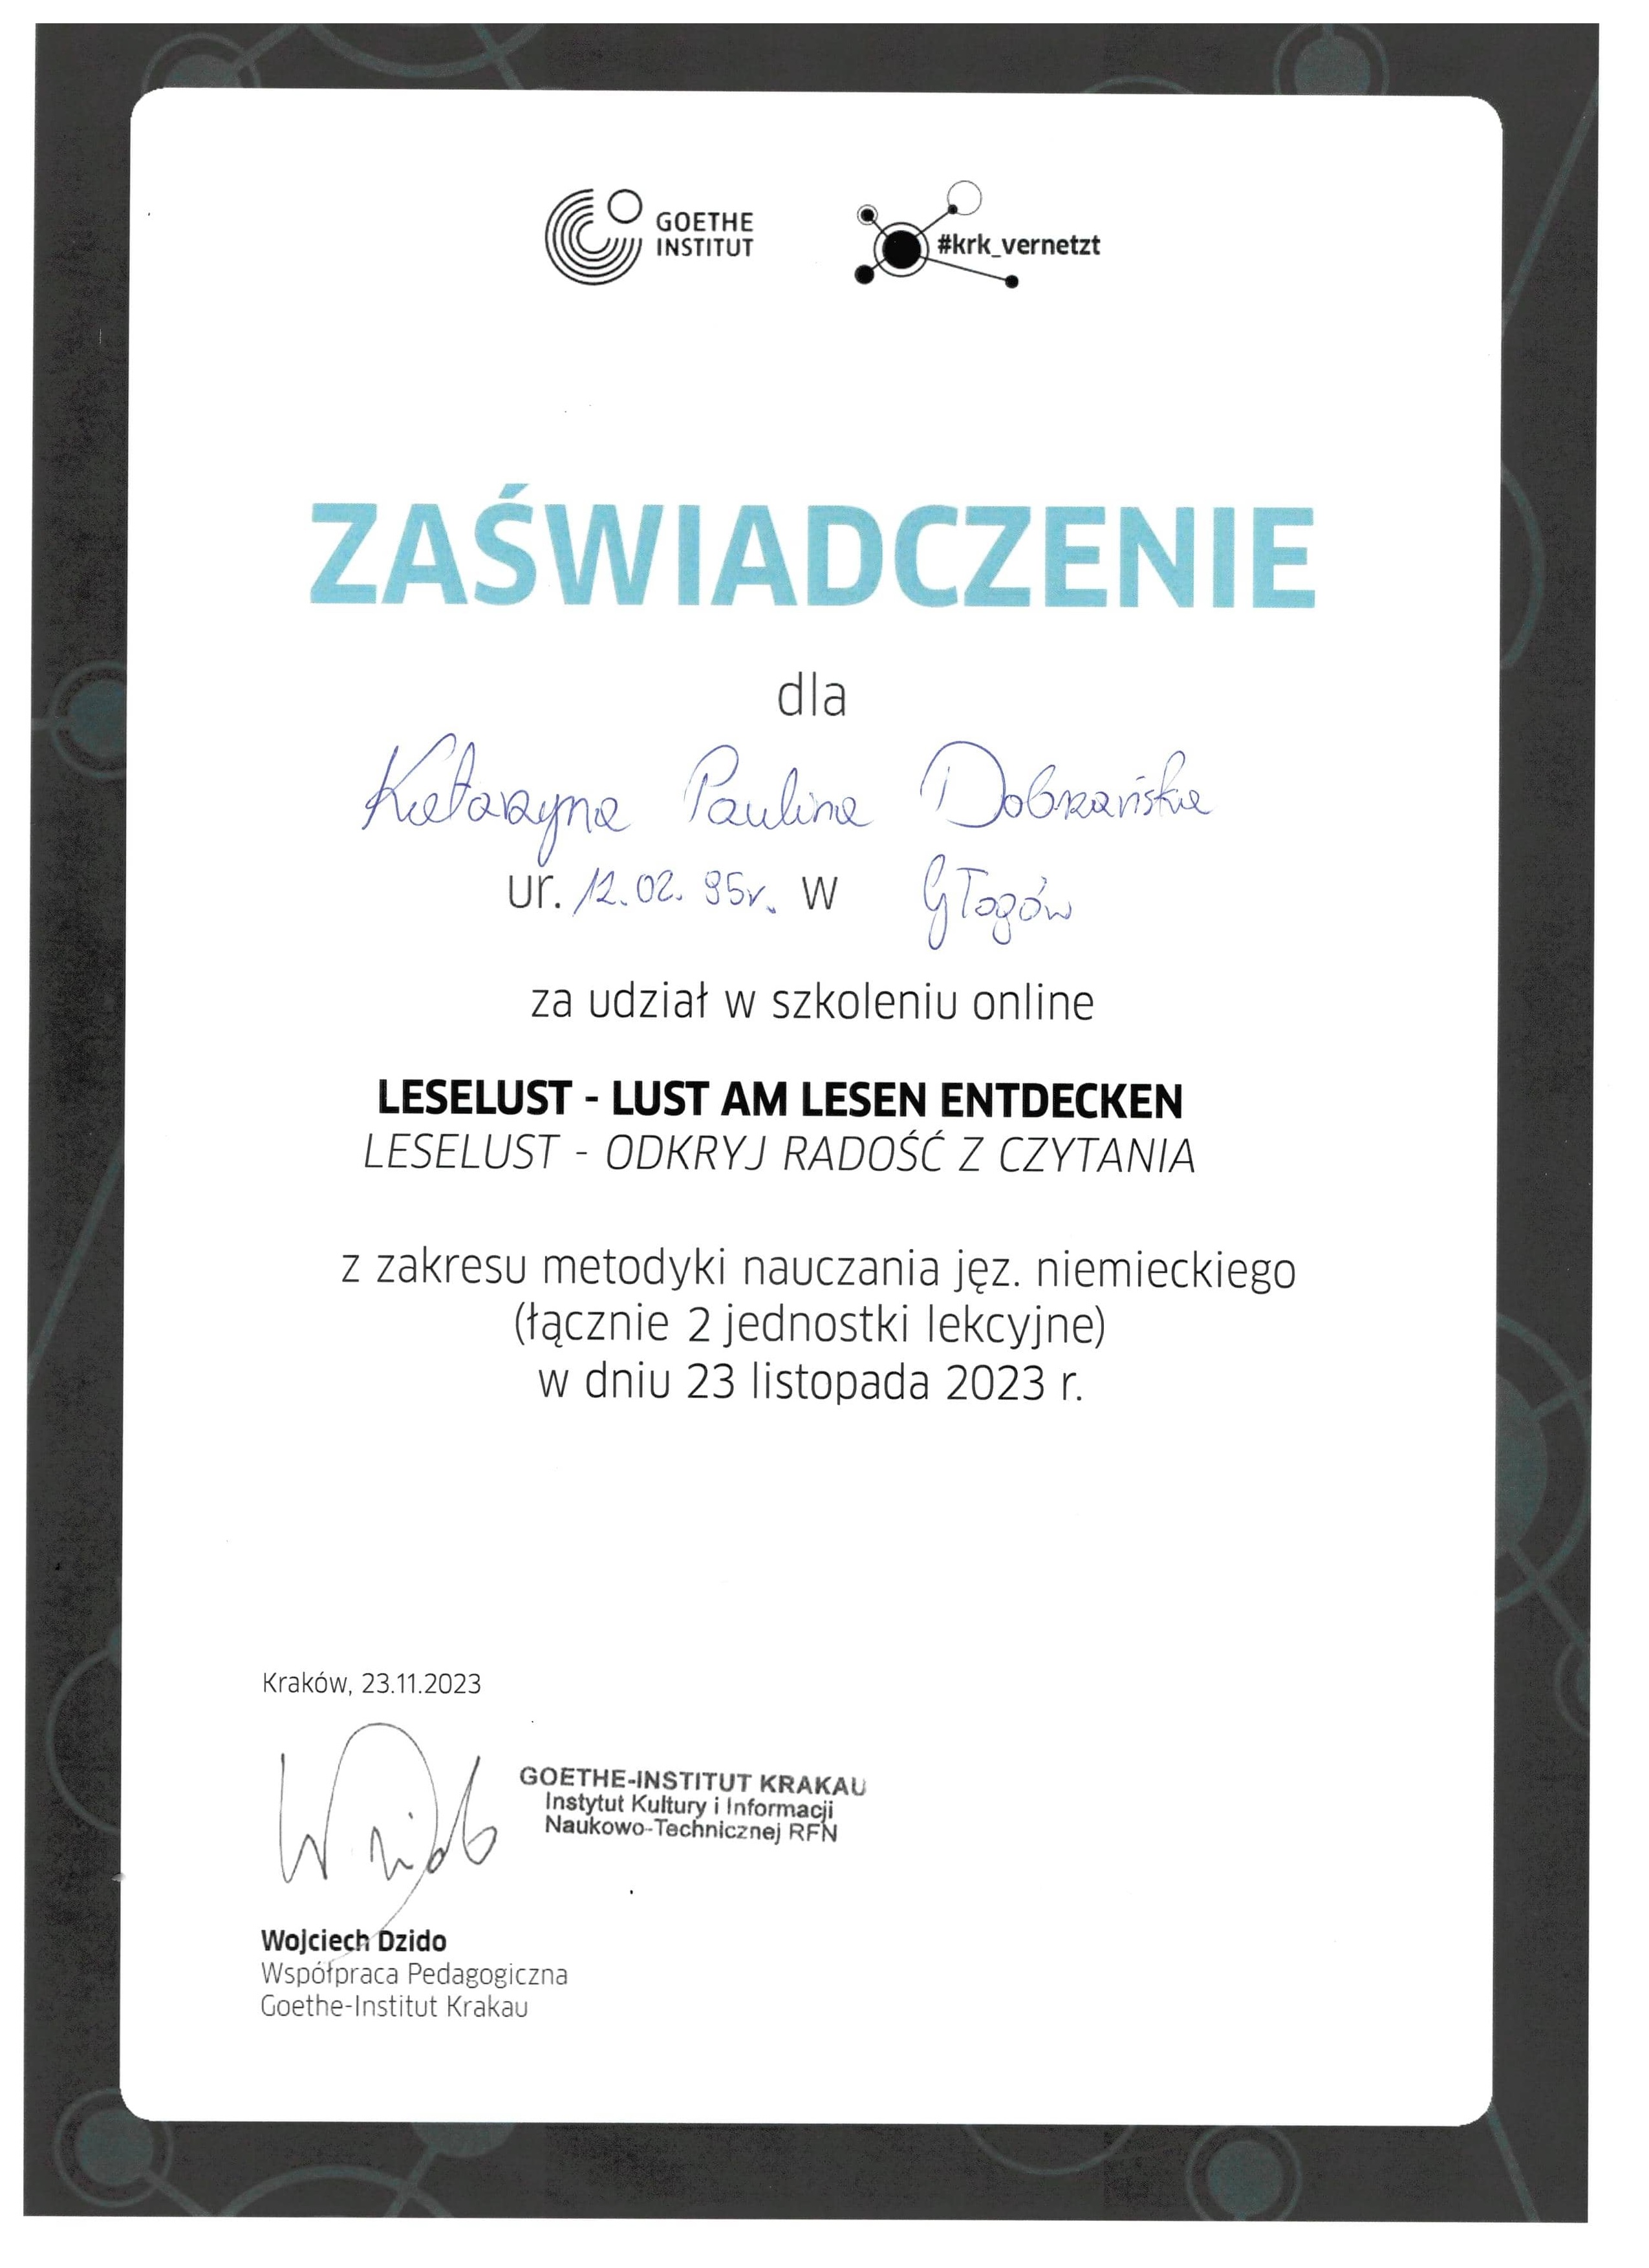 GOETHE
INSTITUT
#krk_vernetzt
ZAŚWIADCZENIE
dla
Katarzyna Paulina Dobrzańska
ur. 12.02.95r. w Głogów
za udział w szkoleniu online
LESELUST - LUST AM LESEN ENTDECKEN
LESELUST - ODKRYJ RADOŚĆ Z CZYTANIA
z zakresu metodyki nauczania jęz. niemieckiego
(łącznie 2 jednostki lekcyjne)
w dniu 23 listopada 2023 r.
Kraków, 23.11.2023
GOETHE-INSTITUT KRAKAU
Instytut Kultury i Informacji
Naukowo-Technicznej RFN
Wojciech Dzido
Współpraca Pedagogiczna
Goethe-Institut Krakau